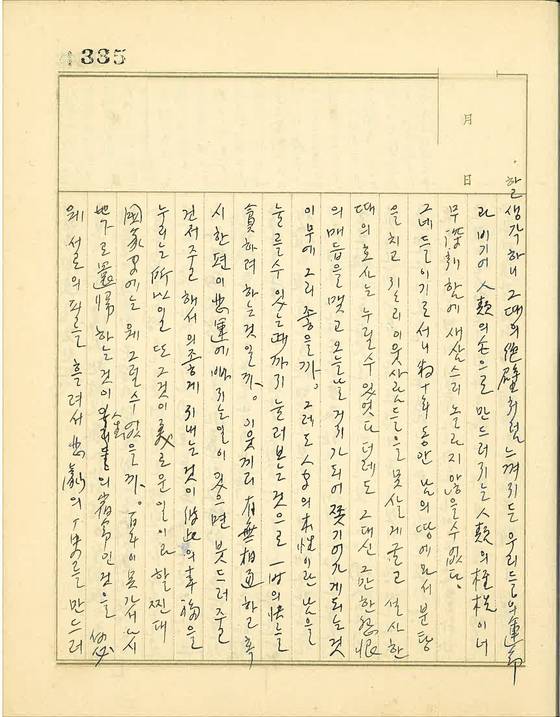 생각하니 그때의 絶壁처럼 느껴지든 우리들의 運命
과 비기어 人類의 손으로 만드러지는 人類의 桎梏이 너
무 深刻함에 새삼스리 놀라지 않을수없다.
그네들이기로서니 동안 남의 땅에와서 분탕
을 치고 이웃사람들을 못살게 굴고 설사 한
때의 호사는 누릴수 있었다 더래도 그대신 그만한 怨恨
의 매듭을 맺고 오늘날 거지가 되어 쫓기어가게 되는것
이 무에 그리 좋을까. 그래도 人間의 本性이란 남을
눌를수 있는때까지 눌러보는것으로 一時의 快를
貪하려 하는것일까. 이웃끼리 有無相通하고 혹
시 한편이 悲運에 빠지는일이 있으면 붓드러주고
건저주고 해서 의좋게 지내는것이 彼此의 幸福을
누리는 所以일 또 그것이 美로운 일이라 할찐대
國家間에는 왜 그럴수 없을까. 百年이 못가서 다시
地下로 還歸하는것이 우리들의 宿命인것을
왜 설로의 피를 흘려서 悲劇의 만드러
月
日
335